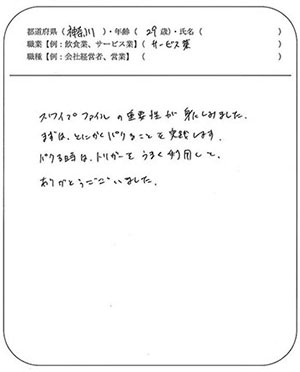 都道府県(神奈川)・年齢(29歳)・氏名()
職業【例:飲食業、サービス業】(サービス業)
職種【例:会社経営者、営業】()
スワイプファイルの重要性が身にしみました。
まずは、とにかくパクることを実践します。
パクる時は、トリガーをうまく利用して。
ありがとうございました。